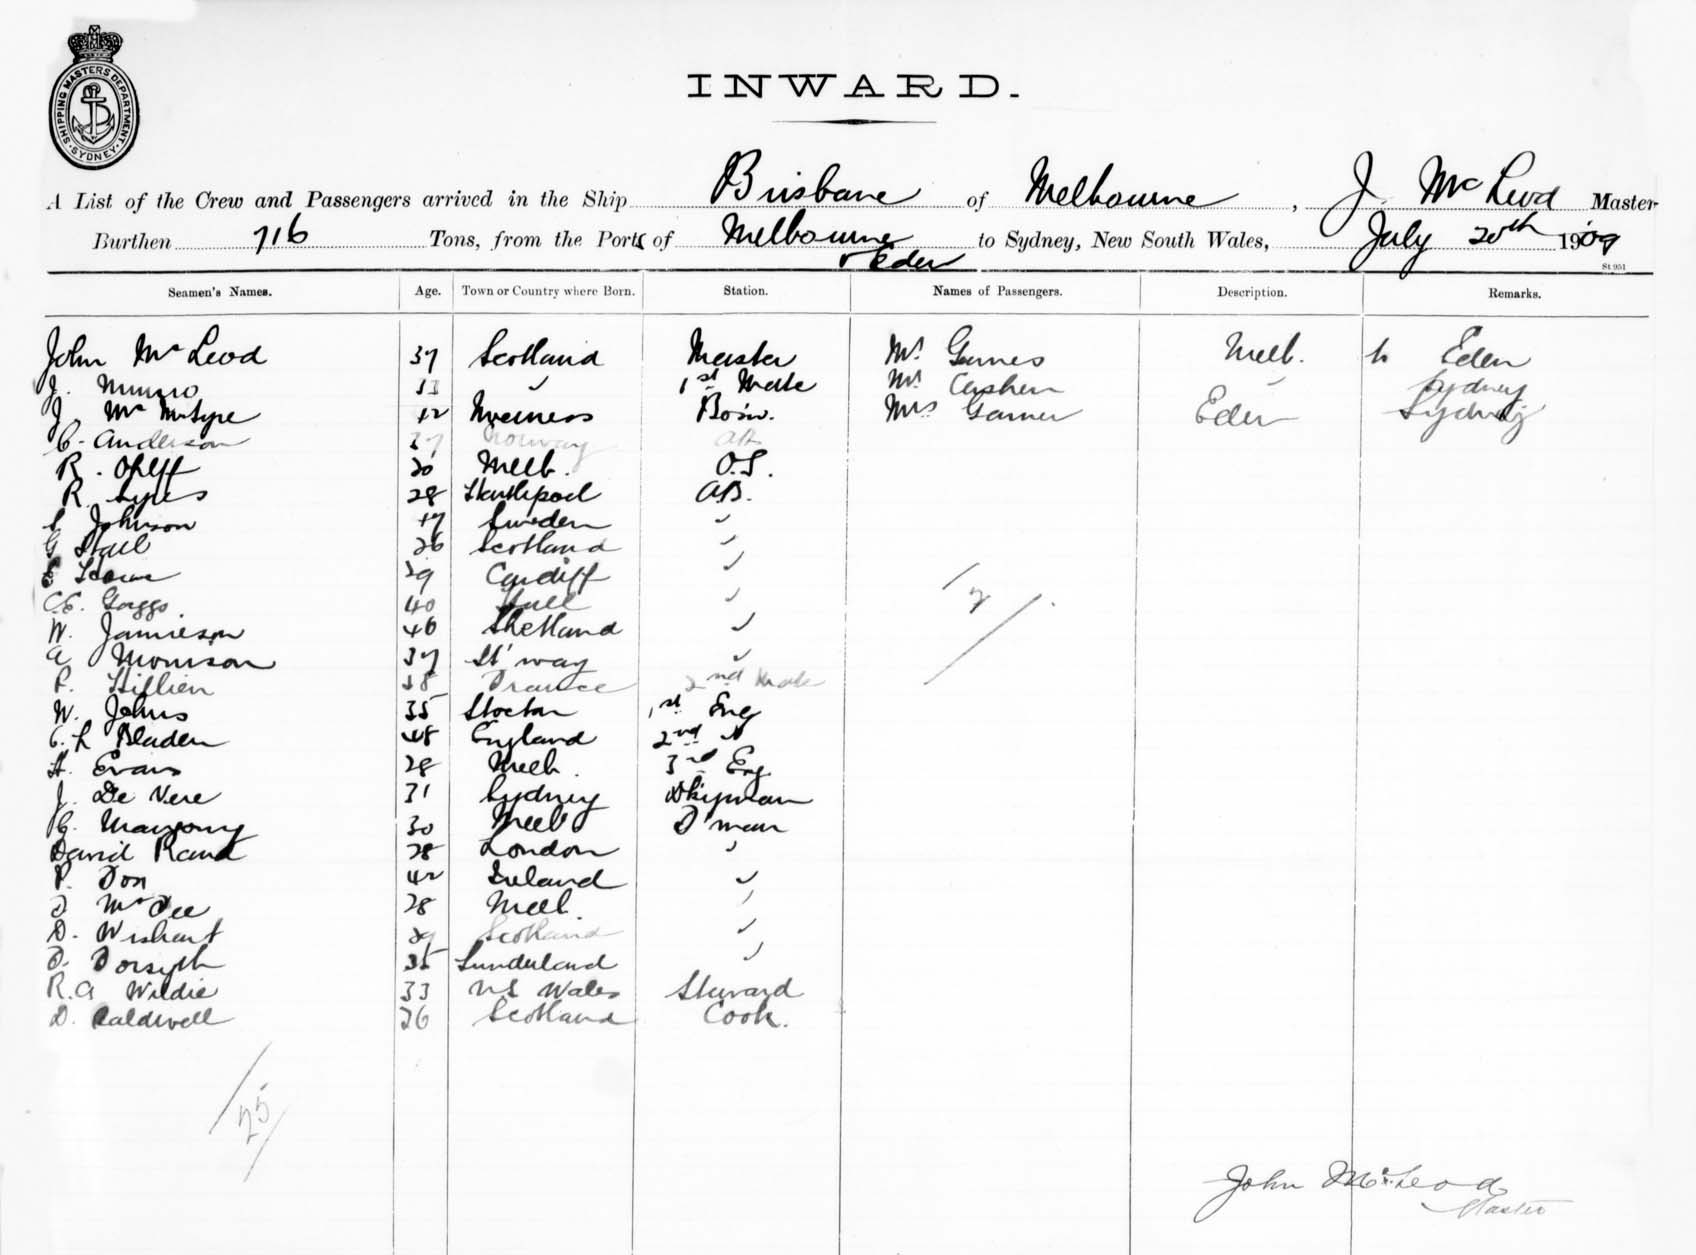 SHIPPING MASTERS DEPARTMENT. SYDNEY.
INWARD.
A List of the Crew and Passengers arrived in the Ship Brisbane of Melbourne, J. McLeod Master
Burthen 716 Tons, from the Ports of Melbourne & Eden to Sydney, New South Wales, July 20th 1909
St 951
Seamen's Names. Age. Town or Country where Born. Station. Names of Passengers. Description. Remarks.
John McLeod 37 Scotland Master Mr Melb. to Eden
J. Munro 33 ✓ 1st Mate Mr Sydney
J. McIntyre 42 Inverness Bosn. Mrs Garner Eden Sydney
C. Anderson 37 Norway AB
R. 20 Melb. O.S.
R. 28 Hartlepool AB.
Johnson 47 Sweden "
G 26 Scotland "
E 29 Cardiff "
C.E. Goggs. 40 Hull "
W. Jamieson 46 Shetland "
A Morrison 37 St'way "
P. 38 France 2nd Mate
W. Johns 35 Stockton 1st Eng
C. L Bladen 48 England 2nd "
H. Evans 28 Melb. 3rd Eng
J. De Vere 31 Sydney Dkyman
30 Melb F'man
David Rand 28 London "
P. Fox 42 Ireland "
D McFee 28 Melb. "
D. Wishart 29 Scotland "
D. Forsyth 35 Sunderland "
R.A Wildie 33 NS Wales Steward
D. Caldwell 26 Scotland Cook.
25
John McLeod
Master